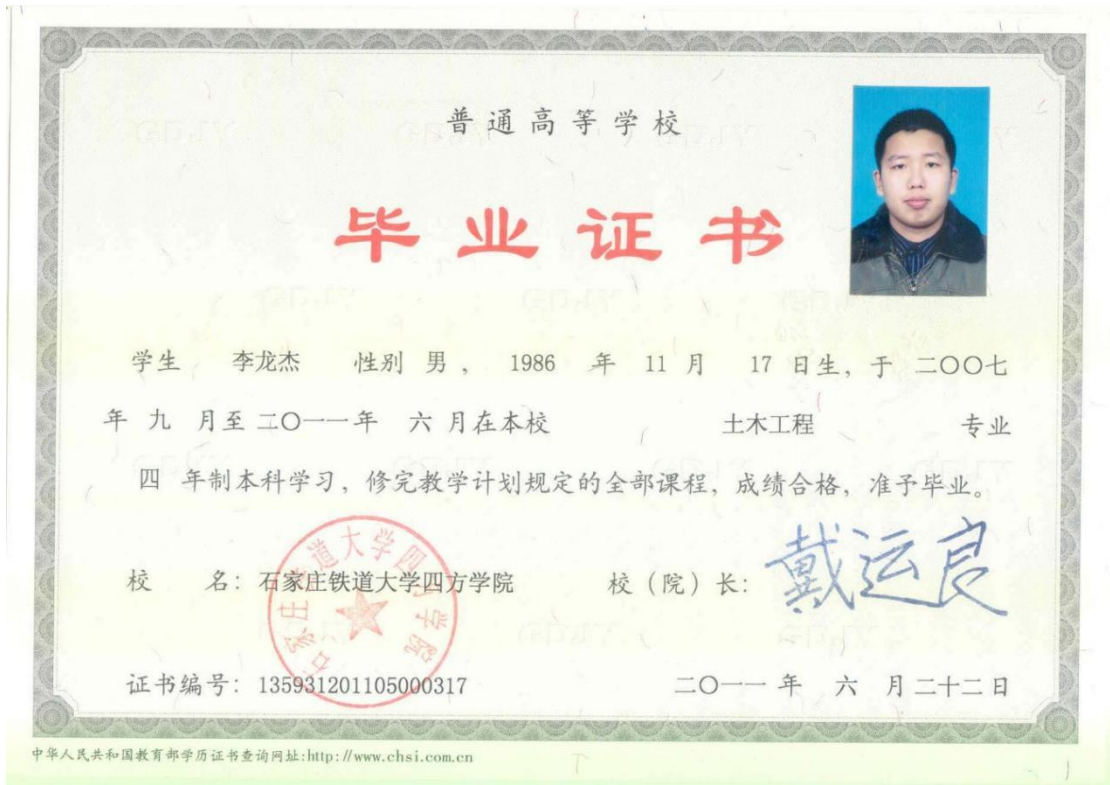 普通高等学校
毕业证书
学生 李龙杰 性别 男， 1986 年 11 月 17 日生，于 二〇〇七
年 九 月至 二〇一一 年 六 月在本校 土木工程 专业
四 年制本科学习，修完教学计划规定的全部课程，成绩合格，准予毕业。
校 名：石家庄铁道大学四方学院 校（院）长：戴运良
石家庄铁道大学四方学院
证书编号：135931201105000317 二〇一一 年 六 月 二十二 日
中华人民共和国教育部学历证书查询网址:http://www.chsi.com.cn